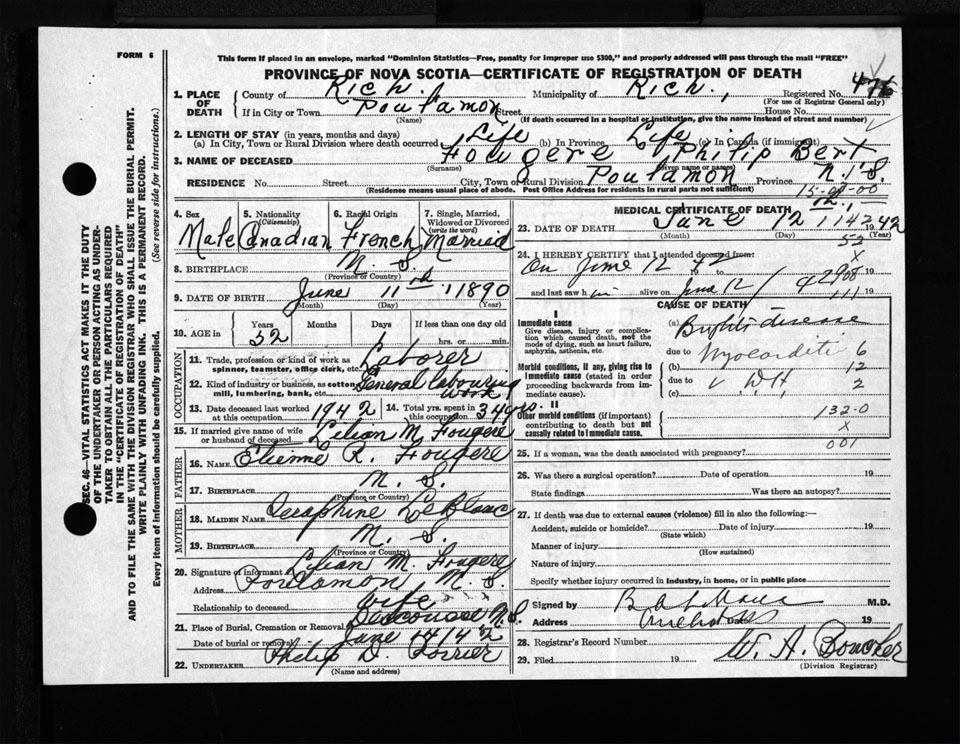 FORM 6
This form if placed in an envelope, marked "Dominion Statistics—Free, penalty for improper use $300," and properly addressed will pass through the mail "FREE"
PROVINCE OF NOVA SCOTIA—CERTIFICATE OF REGISTRATION OF DEATH
1. PLACE OF DEATH County of Rich. Municipality of Rich., Registered No.
(For use of Registrar General only)
If in City or Town Poulamon Street House No.
(Name) (If death occurred in a hospital or institution, give the name instead of street and number)
2. LENGTH OF STAY (in years, months and days)
(a) In City, Town or Rural Division where death occurred Life (b) In Province Life (c) In Canada (if immigrant)
3. NAME OF DECEASED Fougere Philip Bert
(Surname)
RESIDENCE No. Street City, Town or Rural Division Poulamon Province N.S.
(Residence means usual place of abode. Post Office Address for residents in rural parts not sufficient)
4. Sex 5. Nationality (Citizenship) 6. Racial Origin 7. Single, Married, Widowed or Divorced (write the word)
Male Canadian French Married
8. BIRTHPLACE N. S.
(Province or Country)
9. DATE OF BIRTH June 11th 1890
(Month) (Day) (Year)
10. AGE in Years Months Days If less than one day old
52 hrs. or min.
OCCUPATION
11. Trade, profession or kind of work as spinner, teamster, office clerk, etc. Laborer
12. Kind of industry or business, as cotton mill, lumbering, bank, etc. General Labouring work
13. Date deceased last worked at this occupation 1942 14. Total yrs. spent in this occupation 34 yrs.
15. If married give name of wife or husband of deceased Lilian M. Fougere
FATHER
16. Name Etienne R. Fougere
17. Birthplace N. S.
(Province or County)
MOTHER
18. Maiden Name Seraphine LeBlanc
19. Birthplace N. S.
(Province or Country)
20. Signature of informant Lilian M. Fougere
Address Poulamon, N. S.
Relationship to deceased wife
21. Place of Burial, Cremation or Removal N.S.
Date of burial or removal June 14 1942
22. UNDERTAKER Philip D.
(Name and address)
MEDICAL CERTIFICATE OF DEATH
23. DATE OF DEATH June 12 1942
(Month) (Day) (Year)
24. I HEREBY CERTIFY that I attended deceased from:
On June 12 42 19 to 19
and last saw h im alive on June 12 / 42 19
CAUSE OF DEATH
I
Immediate cause
Give disease, injury or complication which caused death, not the mode of dying, such as heart failure, asphyxia, asthenia, etc.
(a) Brights disease
due to
Morbid conditions, if any, giving rise to immediate cause (stated in order proceeding backwards from immediate cause).
(b)
due to
(c)
II
Other morbid conditions (if important) contributing to death but not causally related to immediate cause.
132-0
X
001
25. If a woman, was the death associated with pregnancy?
26. Was there a surgical operation? Date of operation 19
State findings Was there an autopsy?
27. If death was due to external causes (violence) fill in also the following:—
Accident, suicide or homicide? Date of injury 19
(State which)
Manner of injury
(How sustained)
Nature of injury
Specify whether injury occurred in industry, in home, or in public place
Signed by M.D.
Address Date 19
28. Registrar's Record Number
29. Filed 19 W. A.
(Division Registrar)
SEC. 46—VITAL STATISTICS ACT MAKES IT THE DUTY
OF THE UNDERTAKER OR PERSON ACTING AS UNDER-
TAKER TO OBTAIN ALL THE PARTICULARS REQUIRED
IN THE "CERTIFICATE OF REGISTRATION OF DEATH"
AND TO FILE THE SAME WITH THE DIVISION REGISTRAR WHO SHALL ISSUE THE BURIAL PERMIT.
WRITE PLAINLY WITH UNFADING INK. THIS IS A PERMANENT RECORD.
Every item of information should be carefully supplied. (See reverse side for instructions.)